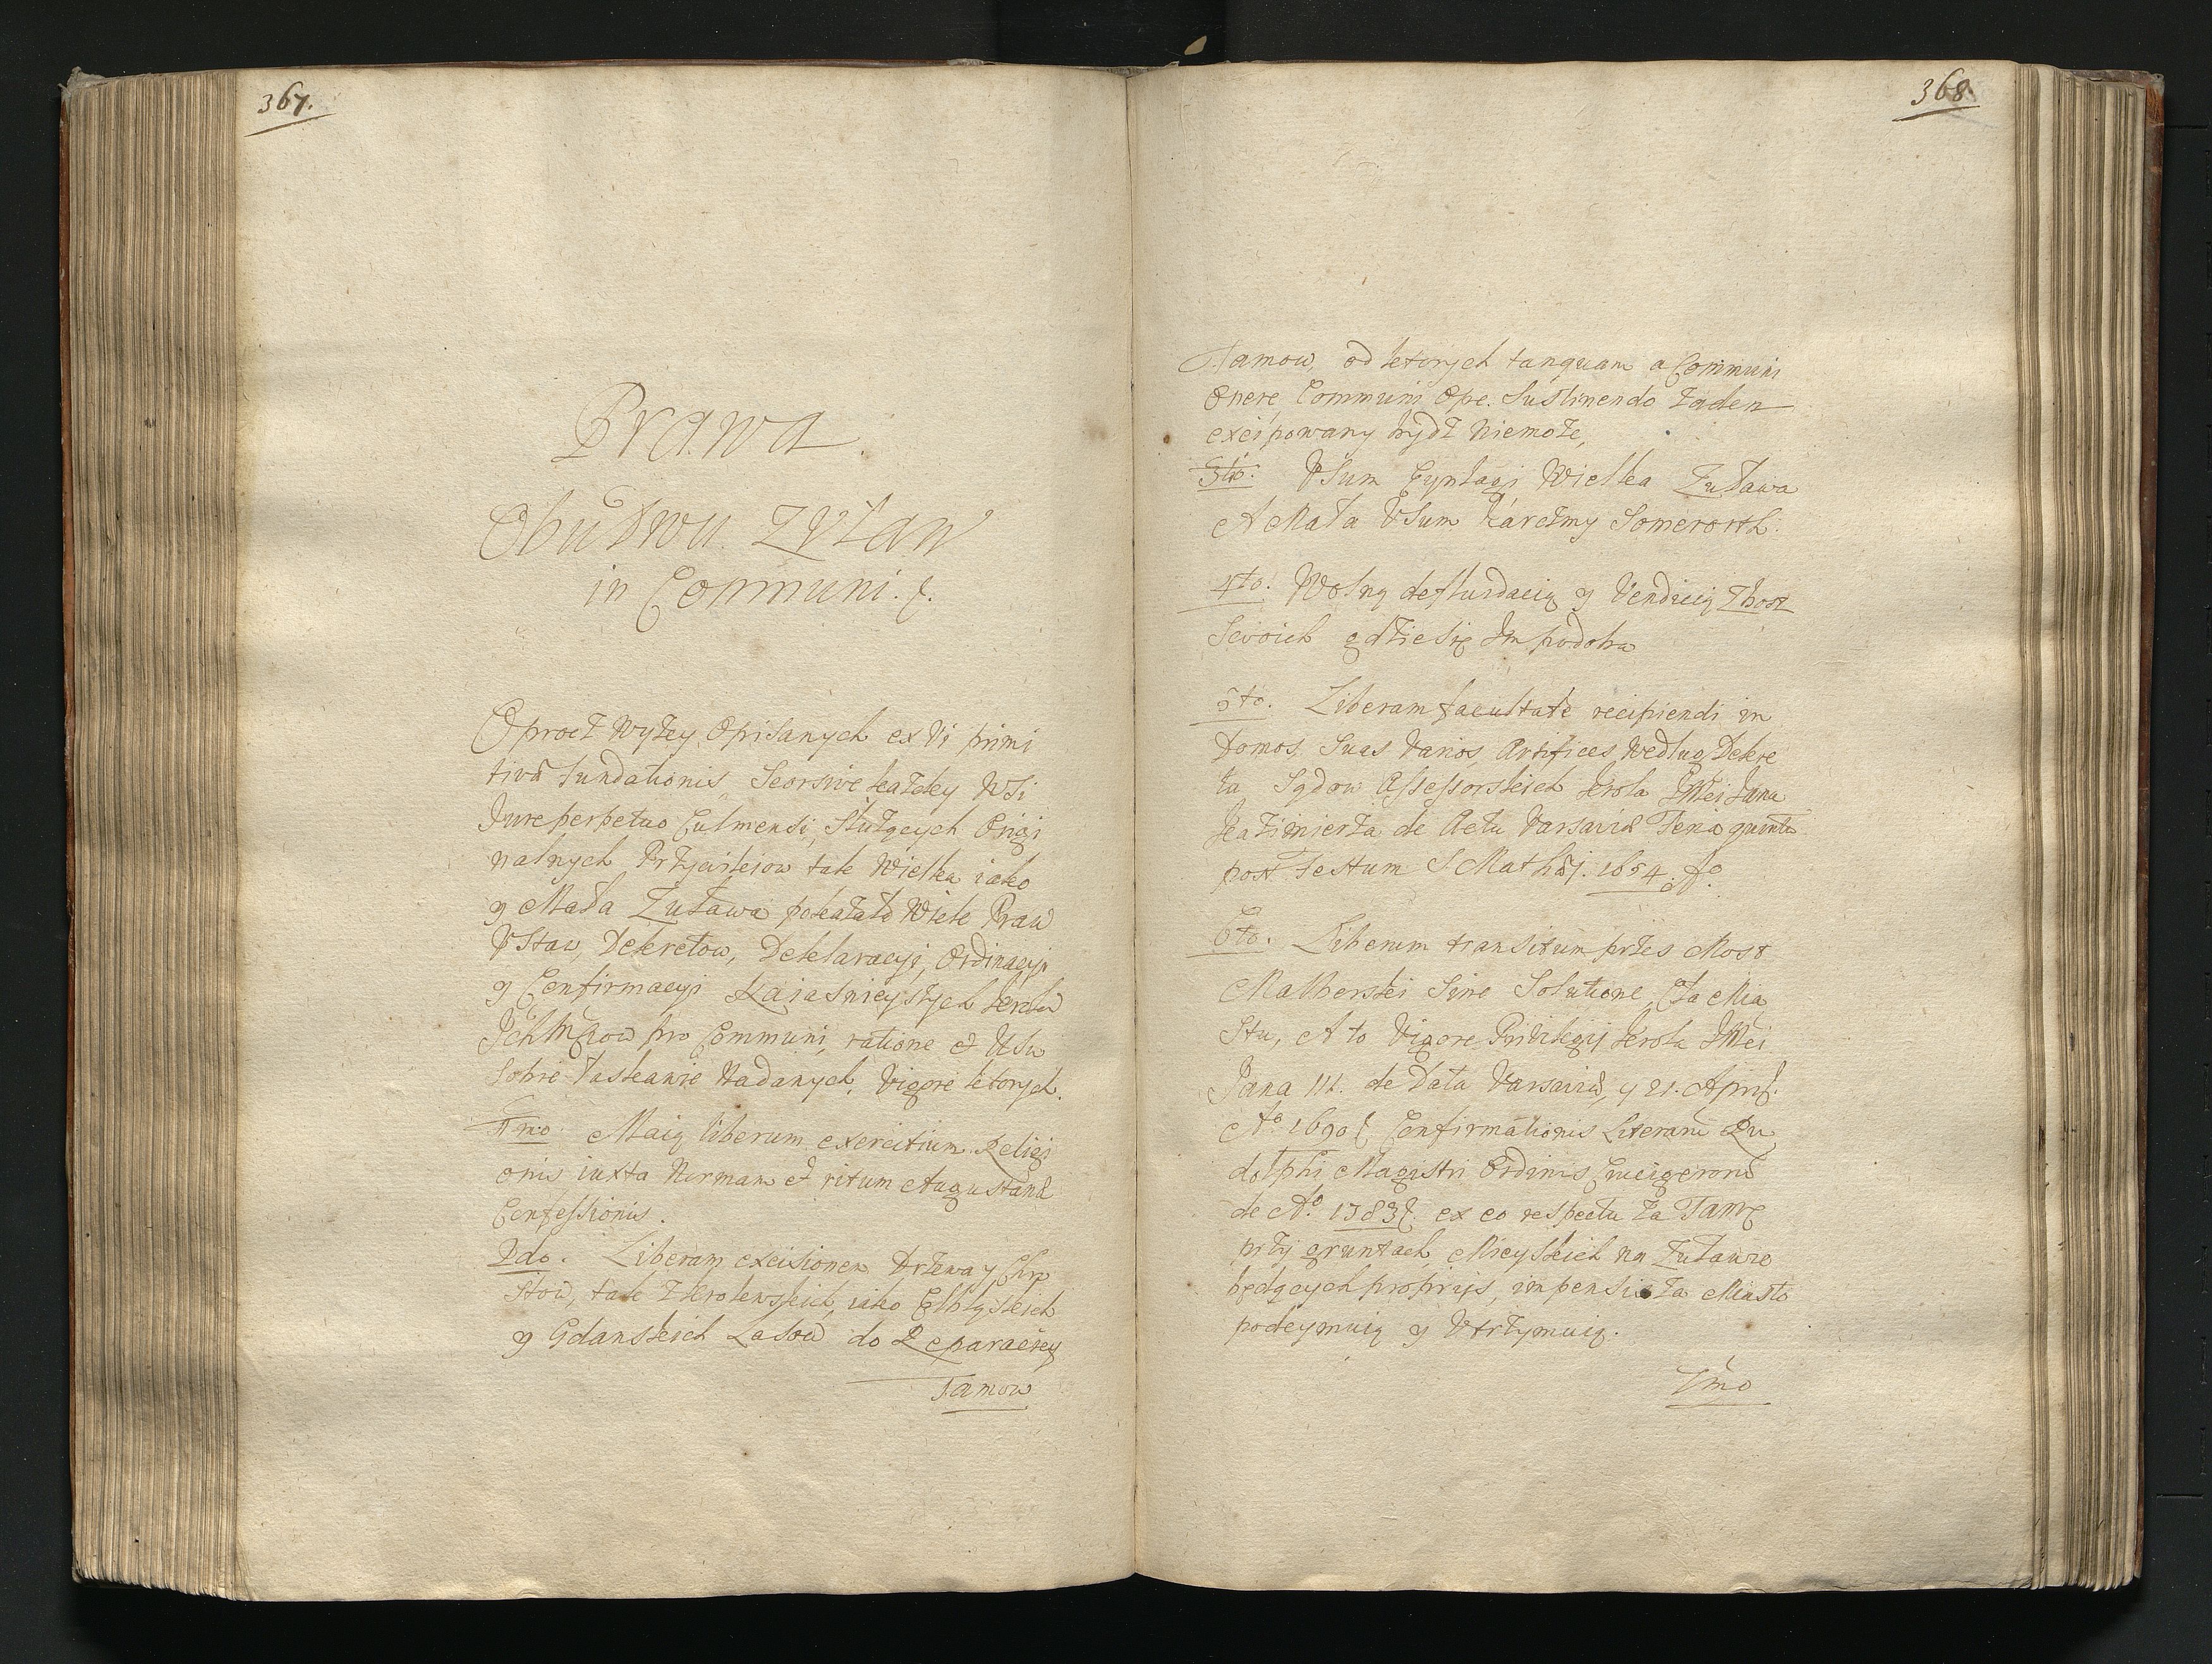 367.
Prawa
Obudwu Zuław
in Communi.
Oprocz wyżey opisanych ex vi primi
tivæ fundationis, Seorsive każdey Wsi
Jure perpetuo Culmensi, służących Origi
nalnych Przywileiow tak Wielka iako
y Mała Zuława pokazało wiele Praw
Ustaw, Dekretow, Deklaracyi, Ordinacyi
y Confirmacyi Naiaśnieyszych Krolow
pro Communi ratione et Usu
sobie łaskawie nadanych, Vigore ktorych.
1mo. Maią liberum exercitium Religi
onis iuxta Normam et ritum Augustanæ
Confessionis.
2do. Liberam excisionem Drzewa y Chro
stow, tak z Krolewskich, iako Elbląskich
y Gdanskich Lasow do Reparacyey
Tamow
368.
Tamow, od ktorych tanquam a Communi
Onere, Communi Ope. Sustinendo żaden
excipowany bydź niemoże,
3tio. Usum Wielka Zuława
A Mała Usum Karczmy Somerorth.
4to. Wolną defluidacią y Vendicią Zboz
Swoich gdzie się Im podoba
5to. Liberam facultatem recipiendi in
Domos Suas Varios Artifices, według Dekre
ta Sądow Assessorskich Krola JMci Jana
Kazimierza de Actu Varsaviæ Feria quinta
post Festum S Mathæi. 1654. Ao.
6to. Liberum transitum przes Most
Malborski Sine Solutione Cła Mia
stu, A to Vigore Privilegij Krola JMci
Jana III. de Data Varsaviæ, 21. April.
Ao 1690 Confirmationis Literarum Ru
dolphi Magistri Ordinis Crucigerorum
de Ao. 1383. ex eo respectu za Tamę
przy gruntach Mieyskich na Zuławie
będących proprijs impensis za Miasto
podeymuią y Utrzymuią.
7mo